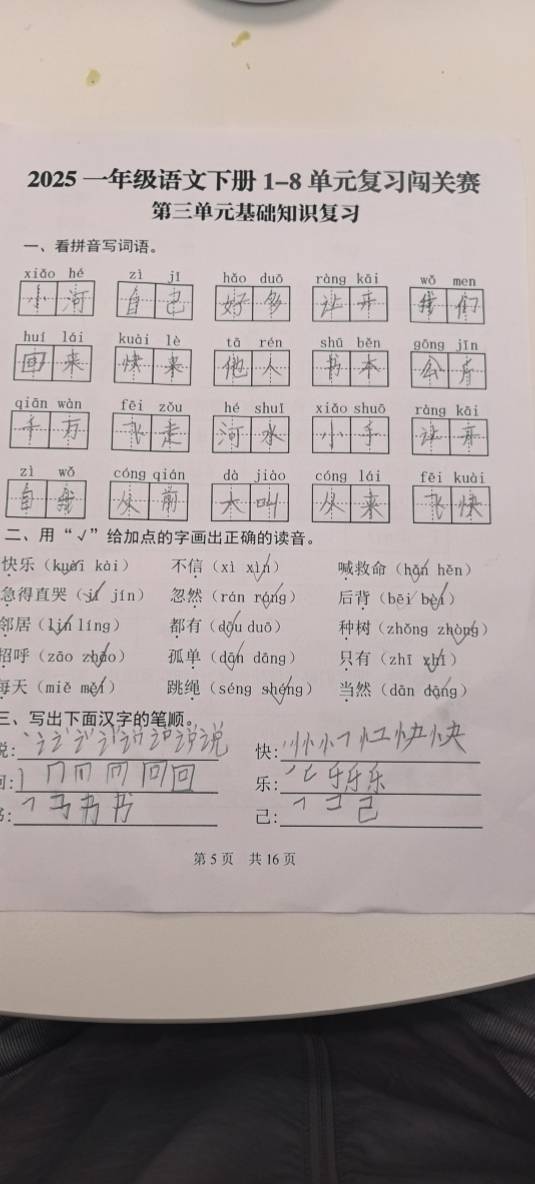 2025 一年级语文下册 1-8 单元复习闯关赛
第三单元基础知识复习
一、看拼音写词语。
xiǎo hé zì jǐ hǎo duō ràng kāi wǒ men
小 河 自 己 好 多 让 开 我 们
huí lái kuài lè tā rén shū běn gōng jīn
回 来 快 来 他 人 书 本 公 斤
qiān wàn fēi zǒu hé shuǐ xiǎo shuō ràng kāi
千 万 飞 走 河 水 小 手 让 开
zì wǒ cóng qián dà jiào cóng lái fēi kuài
自 我 从 前 大 叫 从 来 飞 快
二、用“√”给加点的字画出正确的读音。
快乐（kuài kài） 不信（xì xìn） 喊救命（hǎn hěn）
急得直哭（jí jín） 忽然（rán ráng） 后背（bēi bèi）
邻居（lín líng） 都有（dōu duō） 种树（zhǒng zhòng）
招呼（zāo zhāo） 孤单（dān dāng） 只有（zhī zhǐ）
每天（miě měi） 跳绳（séng shéng） 当然（dān dāng）
三、写出下面汉字的笔顺。
说: 说 快: 快
丨 冂 回 回 乐: 乐
乛 马 书 书 己: ㇕ コ 己
第 5 页 共 16 页